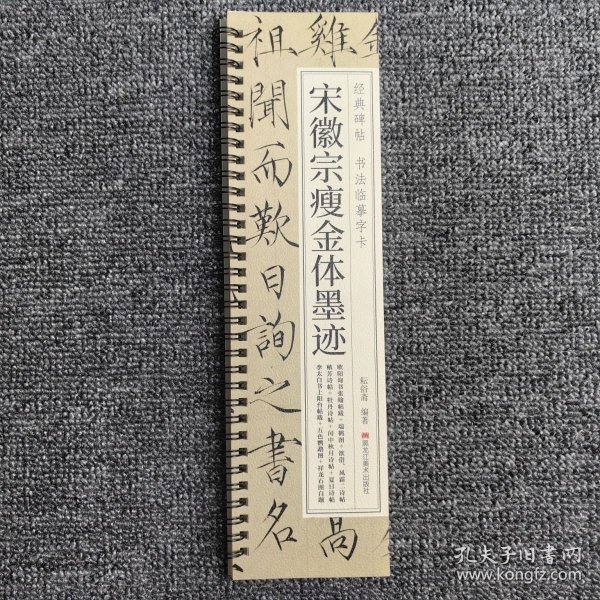 经典碑帖 书法临摹字卡
宋徽宗瘦金体墨迹
欧阳询书张翰帖跋·瑞鹤图·欲借、风霜二诗帖
秾芳诗帖·牡丹诗帖·闰中秋月诗帖·夏日诗帖
李太白书上阳台帖跋·五色鹦鹉图·祥龙石图自题
耘俗斋 编著
黑龙江美术出版社
雞
祖聞而歎日詢之書名
高
孔夫子旧书网
www.kongfz.com